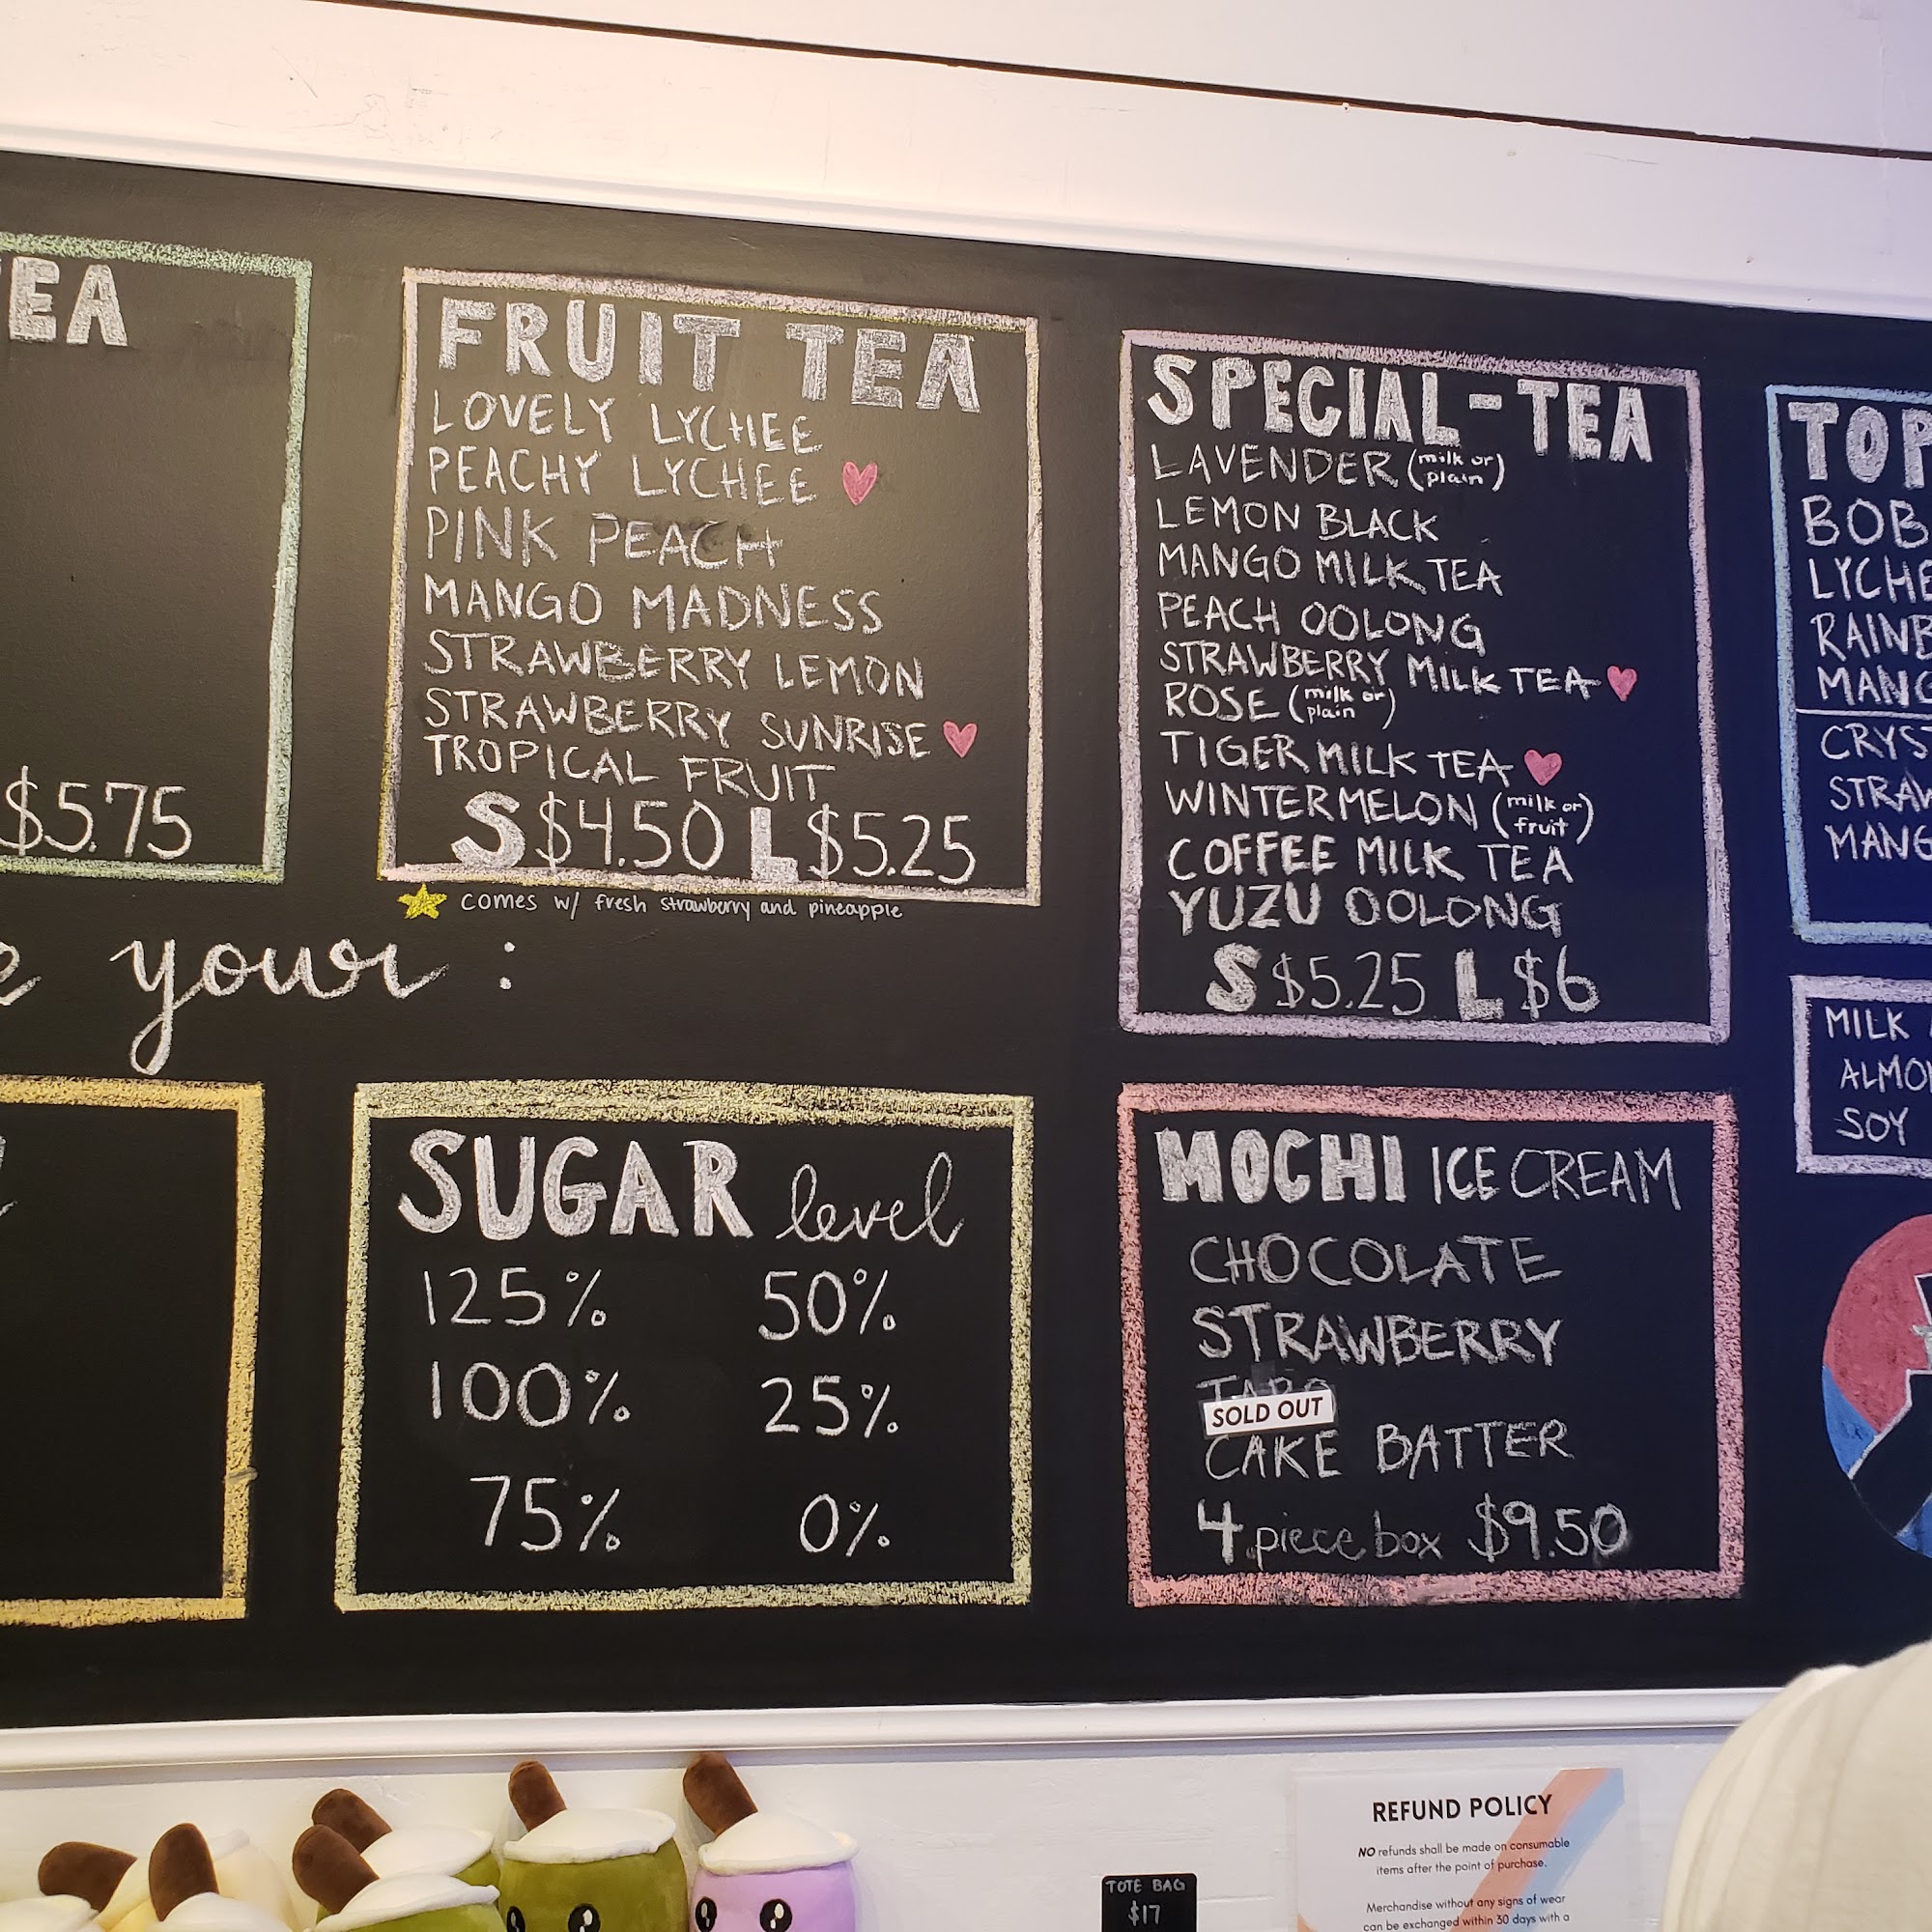 $5.75
FRUIT TEA
LOVELY LYCHEE
PEACHY LYCHEE
PINK PEACH
MANGO MADNESS
STRAWBERRY LEMON
STRAWBERRY SUNRISE
TROPICAL FRUIT
S $4.50 L $5.25
comes w/ fresh strawberry and pineapple
your :
SPECIAL-TEA
LAVENDER (milk or plain)
LEMON BLACK
MANGO MILK TEA
PEACH OOLONG
STRAWBERRY MILK TEA
ROSE (milk or plain)
TIGER MILK TEA
WINTERMELON (milk or fruit)
COFFEE MILK TEA
YUZU OOLONG
S $5.25 L $6
MILK
SOY
SUGAR level
125% 50%
100% 25%
75% 0%
MOCHI ICE CREAM
CHOCOLATE
STRAWBERRY
SOLD OUT
CAKE BATTER
4 piece box $9.50
TOTE BAG
$17
REFUND POLICY
NO refunds shall be made on consumable
items after the point of purchase.
Merchandise without any signs of wear
can be exchanged within 30 days with a